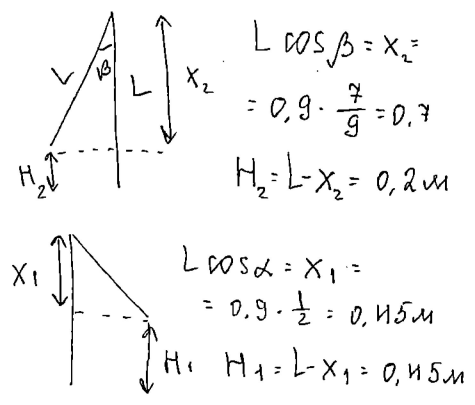 L β L X₂
H₂
L cos β = X₂ =
= 0,9 · 7/9 = 0,7
H₂ = L - X₂ = 0,2 м
X₁
H₁
L cos α = X₁ =
= 0,9 · 1/2 = 0,45 м
H₁ = L - X₁ = 0,45 м